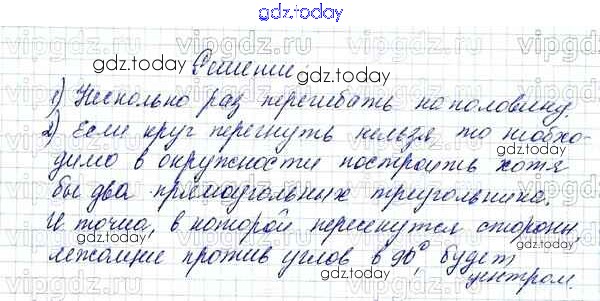 gdz.today
vipgdz.ru vipgdz.ru vipgdz.ru
gdz.today Решение gdz.today
1) Несколько раз перегибать пополовину.
gdz.today
2) Если круг перегнуть нельзя то необхо-
димо в окружности построить хотя
gdz.today
бы два прямоугольных треугольника.
И точка, в которой пересекутся стороны,
gdz.today
лежащие против углов в 90°, будет
gdz.today
центром.